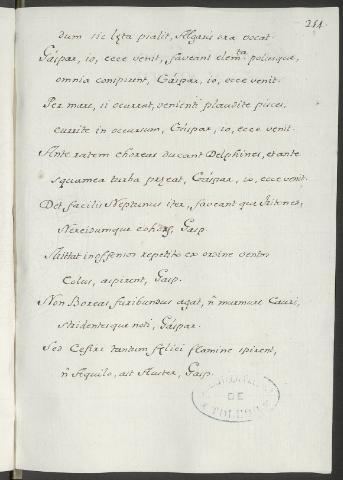 214.
dum sic lęta psalit, Algaris ora vocat.
Gáspar, io, ecce venit, faveant elemta. polusque,
omnia conspirent, Gáspar, io, ecce venit.
Per mare, si ocurrat, venienti plaudite pisces,
currite in occursum, Gáspar, io, ecce venit.
Ante ratem choreas ducant Delphines, et ante
squamea turba pręeat, Gáspar, io, ecce venit.
Det facilis Neptunus iter, faveant que Tritones,
Nereidumque cohors, Gasp.
Mittat inoffensos repetito ex ordine ventos
Eolus, aspirent, Gasp.
Non Boreas furibundus agat, ñ murmure Cauri,
stridentesque noti, Gáspar.
Sed Cefiri tantum fęlici flamine spirent,
ñ Aquilo, ast Auster, Gasp.
DE
TOLEDO